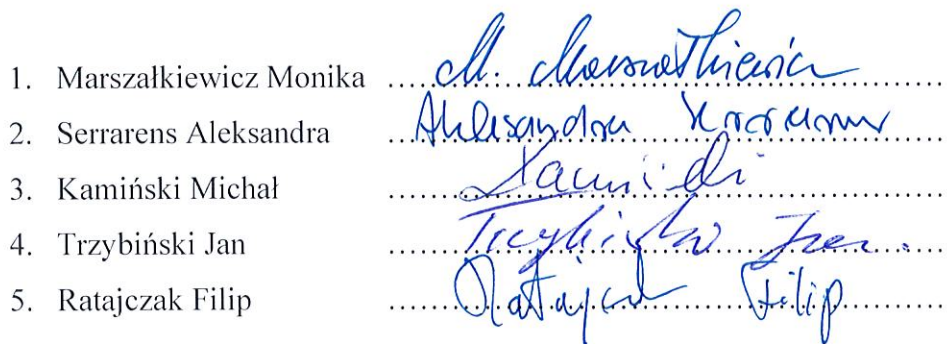 1. Marszałkiewicz Monika ........ M. Marszałkiewicz ........
2. Serrarens Aleksandra ........ Aleksandra Serrarens ........
3. Kamiński Michał ........ Kamiński ........
4. Trzybiński Jan ........ Trzybiński Jan. ........
5. Ratajczak Filip ........ Ratajczak Filip ........